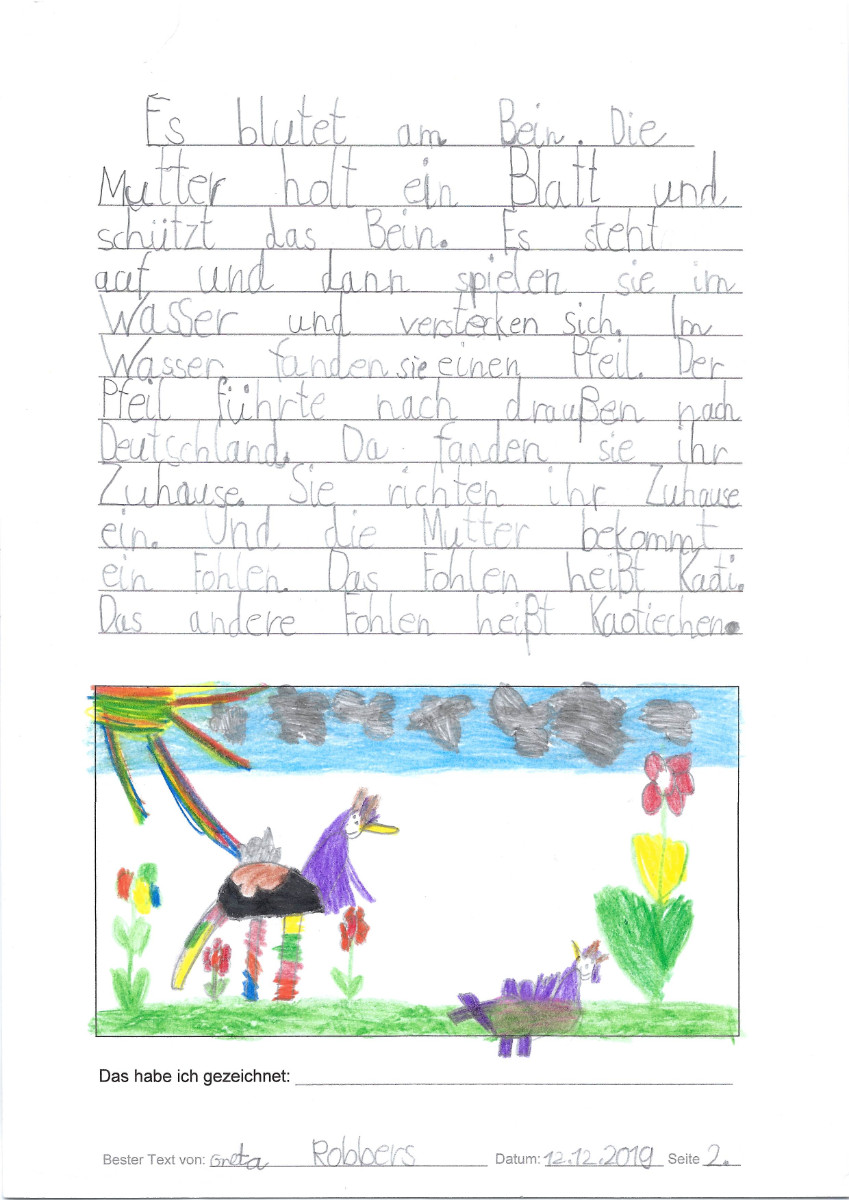 Es blutet am Bein. Die
Mutter holt ein Blatt und
schützt das Bein. Es steht
auf und dann spielen sie im
Wasser und verstecken sich. Im
Wasser fanden sie einen Pfeil. Der
Pfeil führte nach draußen nach
Deutschland. Da fanden sie ihr
Zuhause. Sie richten ihr Zuhause
ein. Und die Mutter bekommt
ein Fohlen. Das Fohlen heißt Kaoti.
Das andere Fohlen heißt Kaotiechen.
Das habe ich gezeichnet:
Bester Text von: Greta Robbers Datum: 12.12.2019 Seite 2.